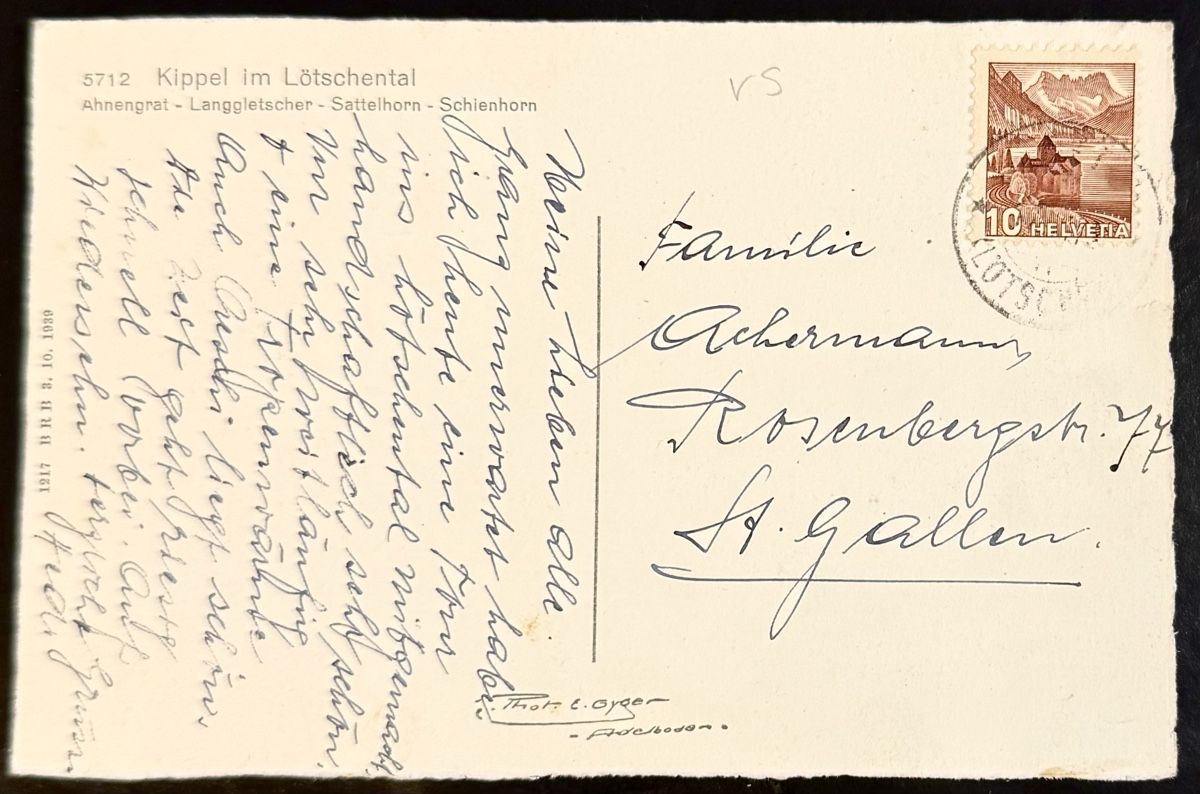 5712 Kippel im Lötschental
Ahnengrat - Langgletscher - Sattelhorn - Schienhorn
Meine Lieben alle.
Ganz unerwartet habe
ich heute eine Tour
ins Lötschental mitgemacht.
Landschaftlich sehr schön.
Nur sehr weitläufig
& eine Tropenwärme
Auch Ausserberg liegt schön.
Die Zeit geht riesig
schnell vorbei. Auf
Wiedersehn. Herzliche Grüsse
Hedi
1217 BRB 3. 10. 1939
VS
10 HELVETIA
LÖTSCH
Familie
Achermann
Rosenbergstr. 77
St. Gallen.
Phot. E. Gyger
- Adelboden -